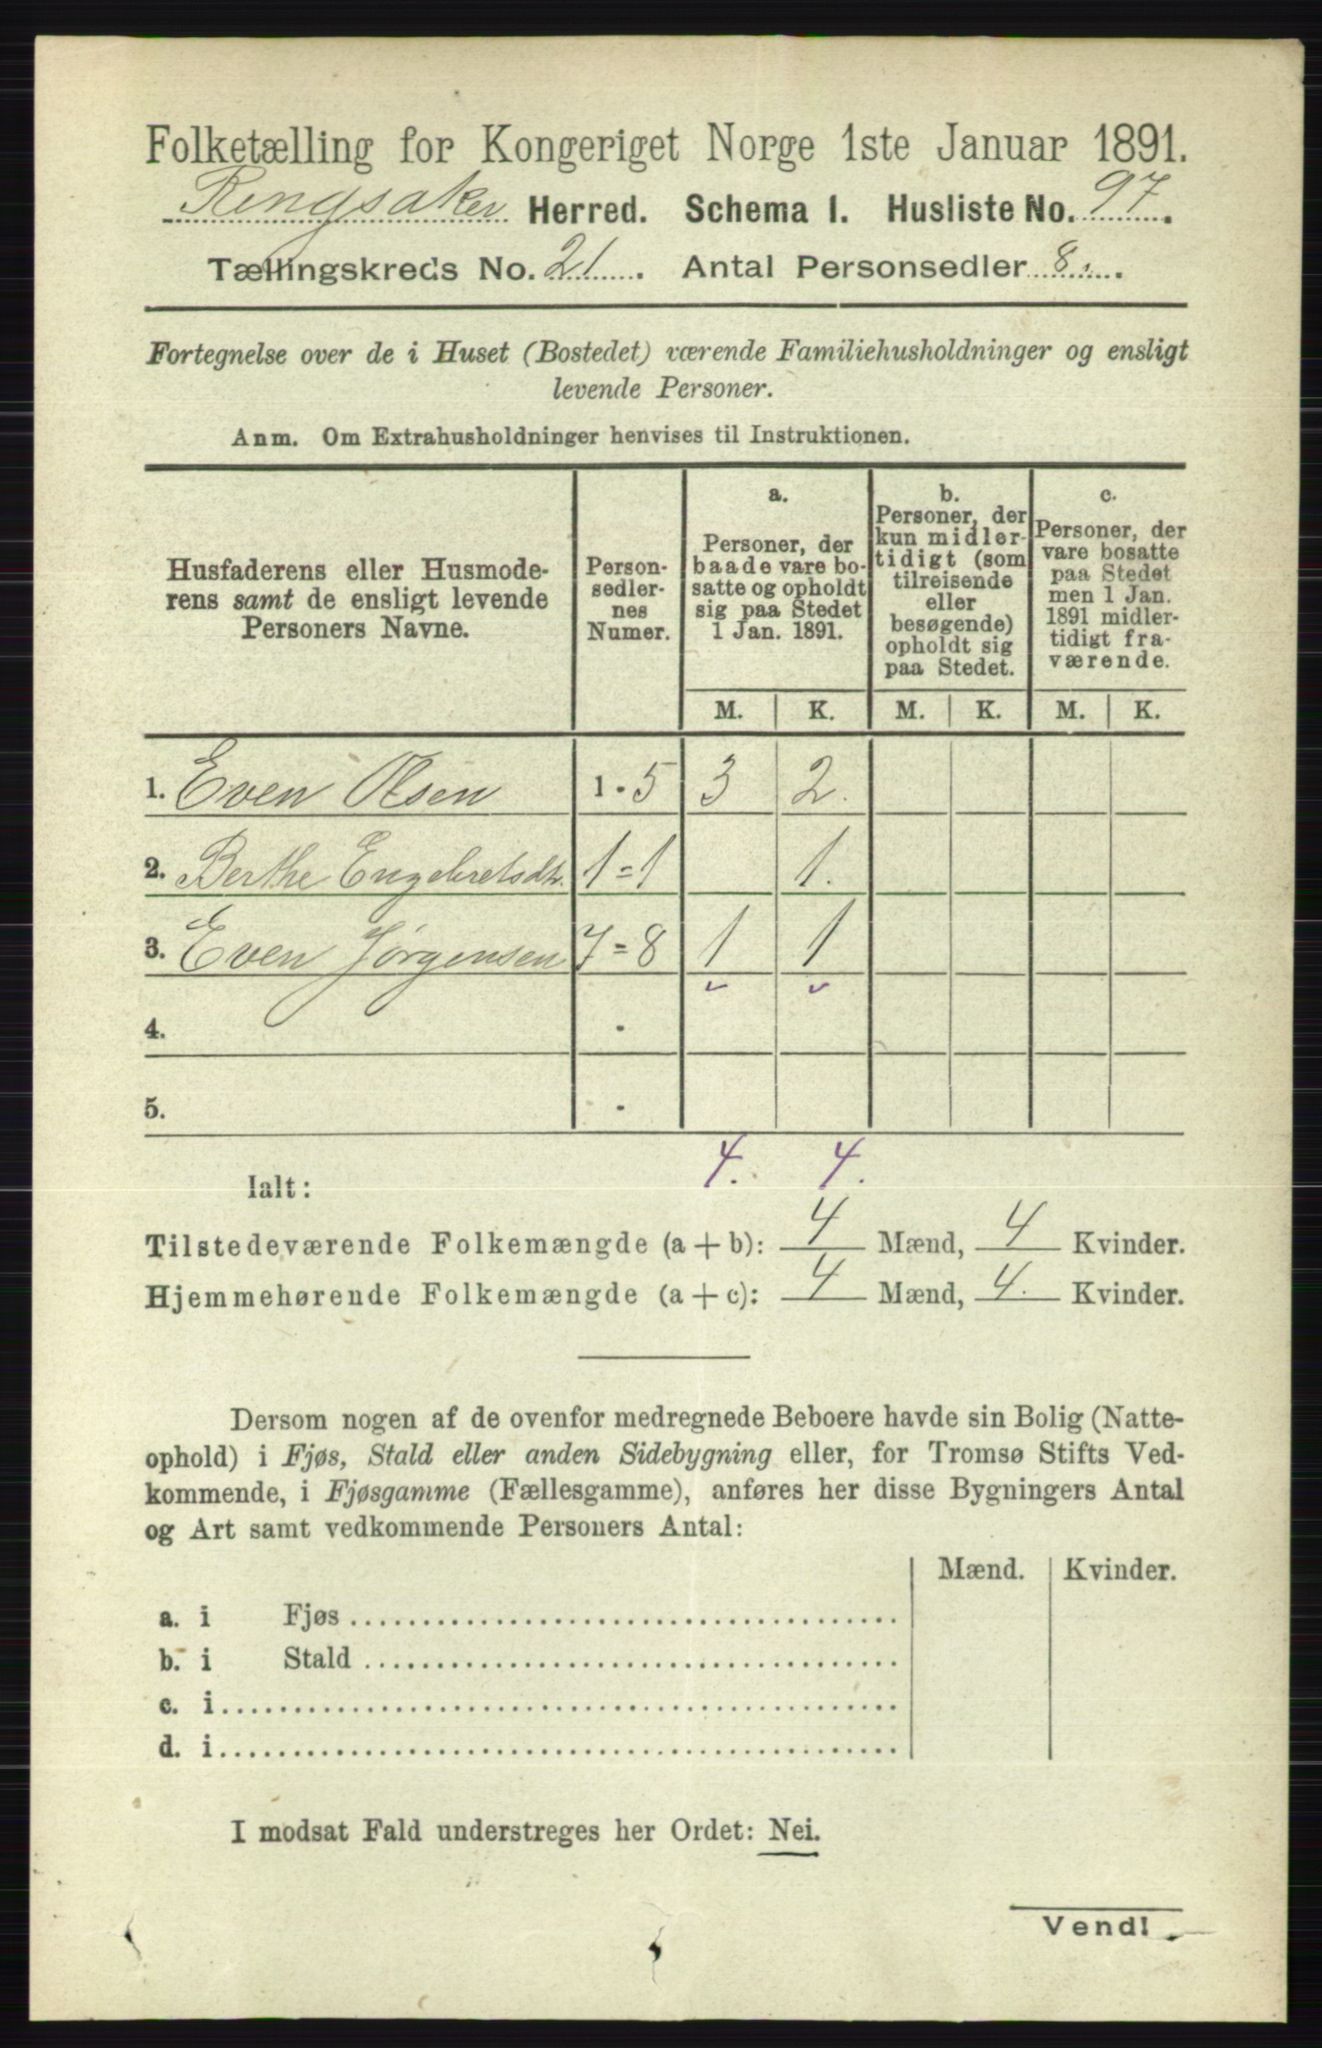 Folketælling for Kongeriget Norge 1ste Januar 1891.
Ringsaker Herred. Schema 1. Husliste No. 97.
Tællingskreds No. 21. Antal Personsedler 8.
Fortegnelse over de i Huset (Bostedet) værende Familiehusholdninger og ensligt
levende Personer.
Anm. Om Extrahusholdninger henvises til Instruktionen.
Husfaderens eller Husmode-
rens samt de ensligt levende
Personers Navne.
Person-
sedler-
nes
Numer.
a.
Personer, der
baade vare bo-
satte og opholdt
sig paa Stedet
1 Jan. 1891.
b.
Personer, der
kun midler-
tidigt (som
tilreisende
eller
besøgende)
opholdt sig
paa Stedet.
c.
Personer, der
vare bosatte
paa Stedet
men 1 Jan.
1891 midler-
tidigt fra-
værende.
M. K. M. K. M. K.
1. Even Olsen 1 - 5 3 2.
2. Berthe Engebretsdtr. 1 = 1 1.
3. Even Jørgensen 7 = 8 1 1
4. -
5. -
Ialt: 4. 4.
Tilstedeværende Folkemængde (a + b): 4 Mænd, 4 Kvinder.
Hjemmehørende Folkemængde (a + c): 4 Mænd, 4. Kvinder.
Dersom nogen af de ovenfor medregnede Beboere havde sin Bolig (Natte-
ophold) i Fjøs, Stald eller anden Sidebygning eller, for Tromsø Stifts Ved-
kommende, i Fjøsgamme (Fællesgamme), anføres her disse Bygningers Antal
og Art samt vedkommende Personers Antal:
Mænd. Kvinder.
a. i Fjøs
b. i Stald
c. i
d. i
I modsat Fald understreges her Ordet: Nei.
Vend!